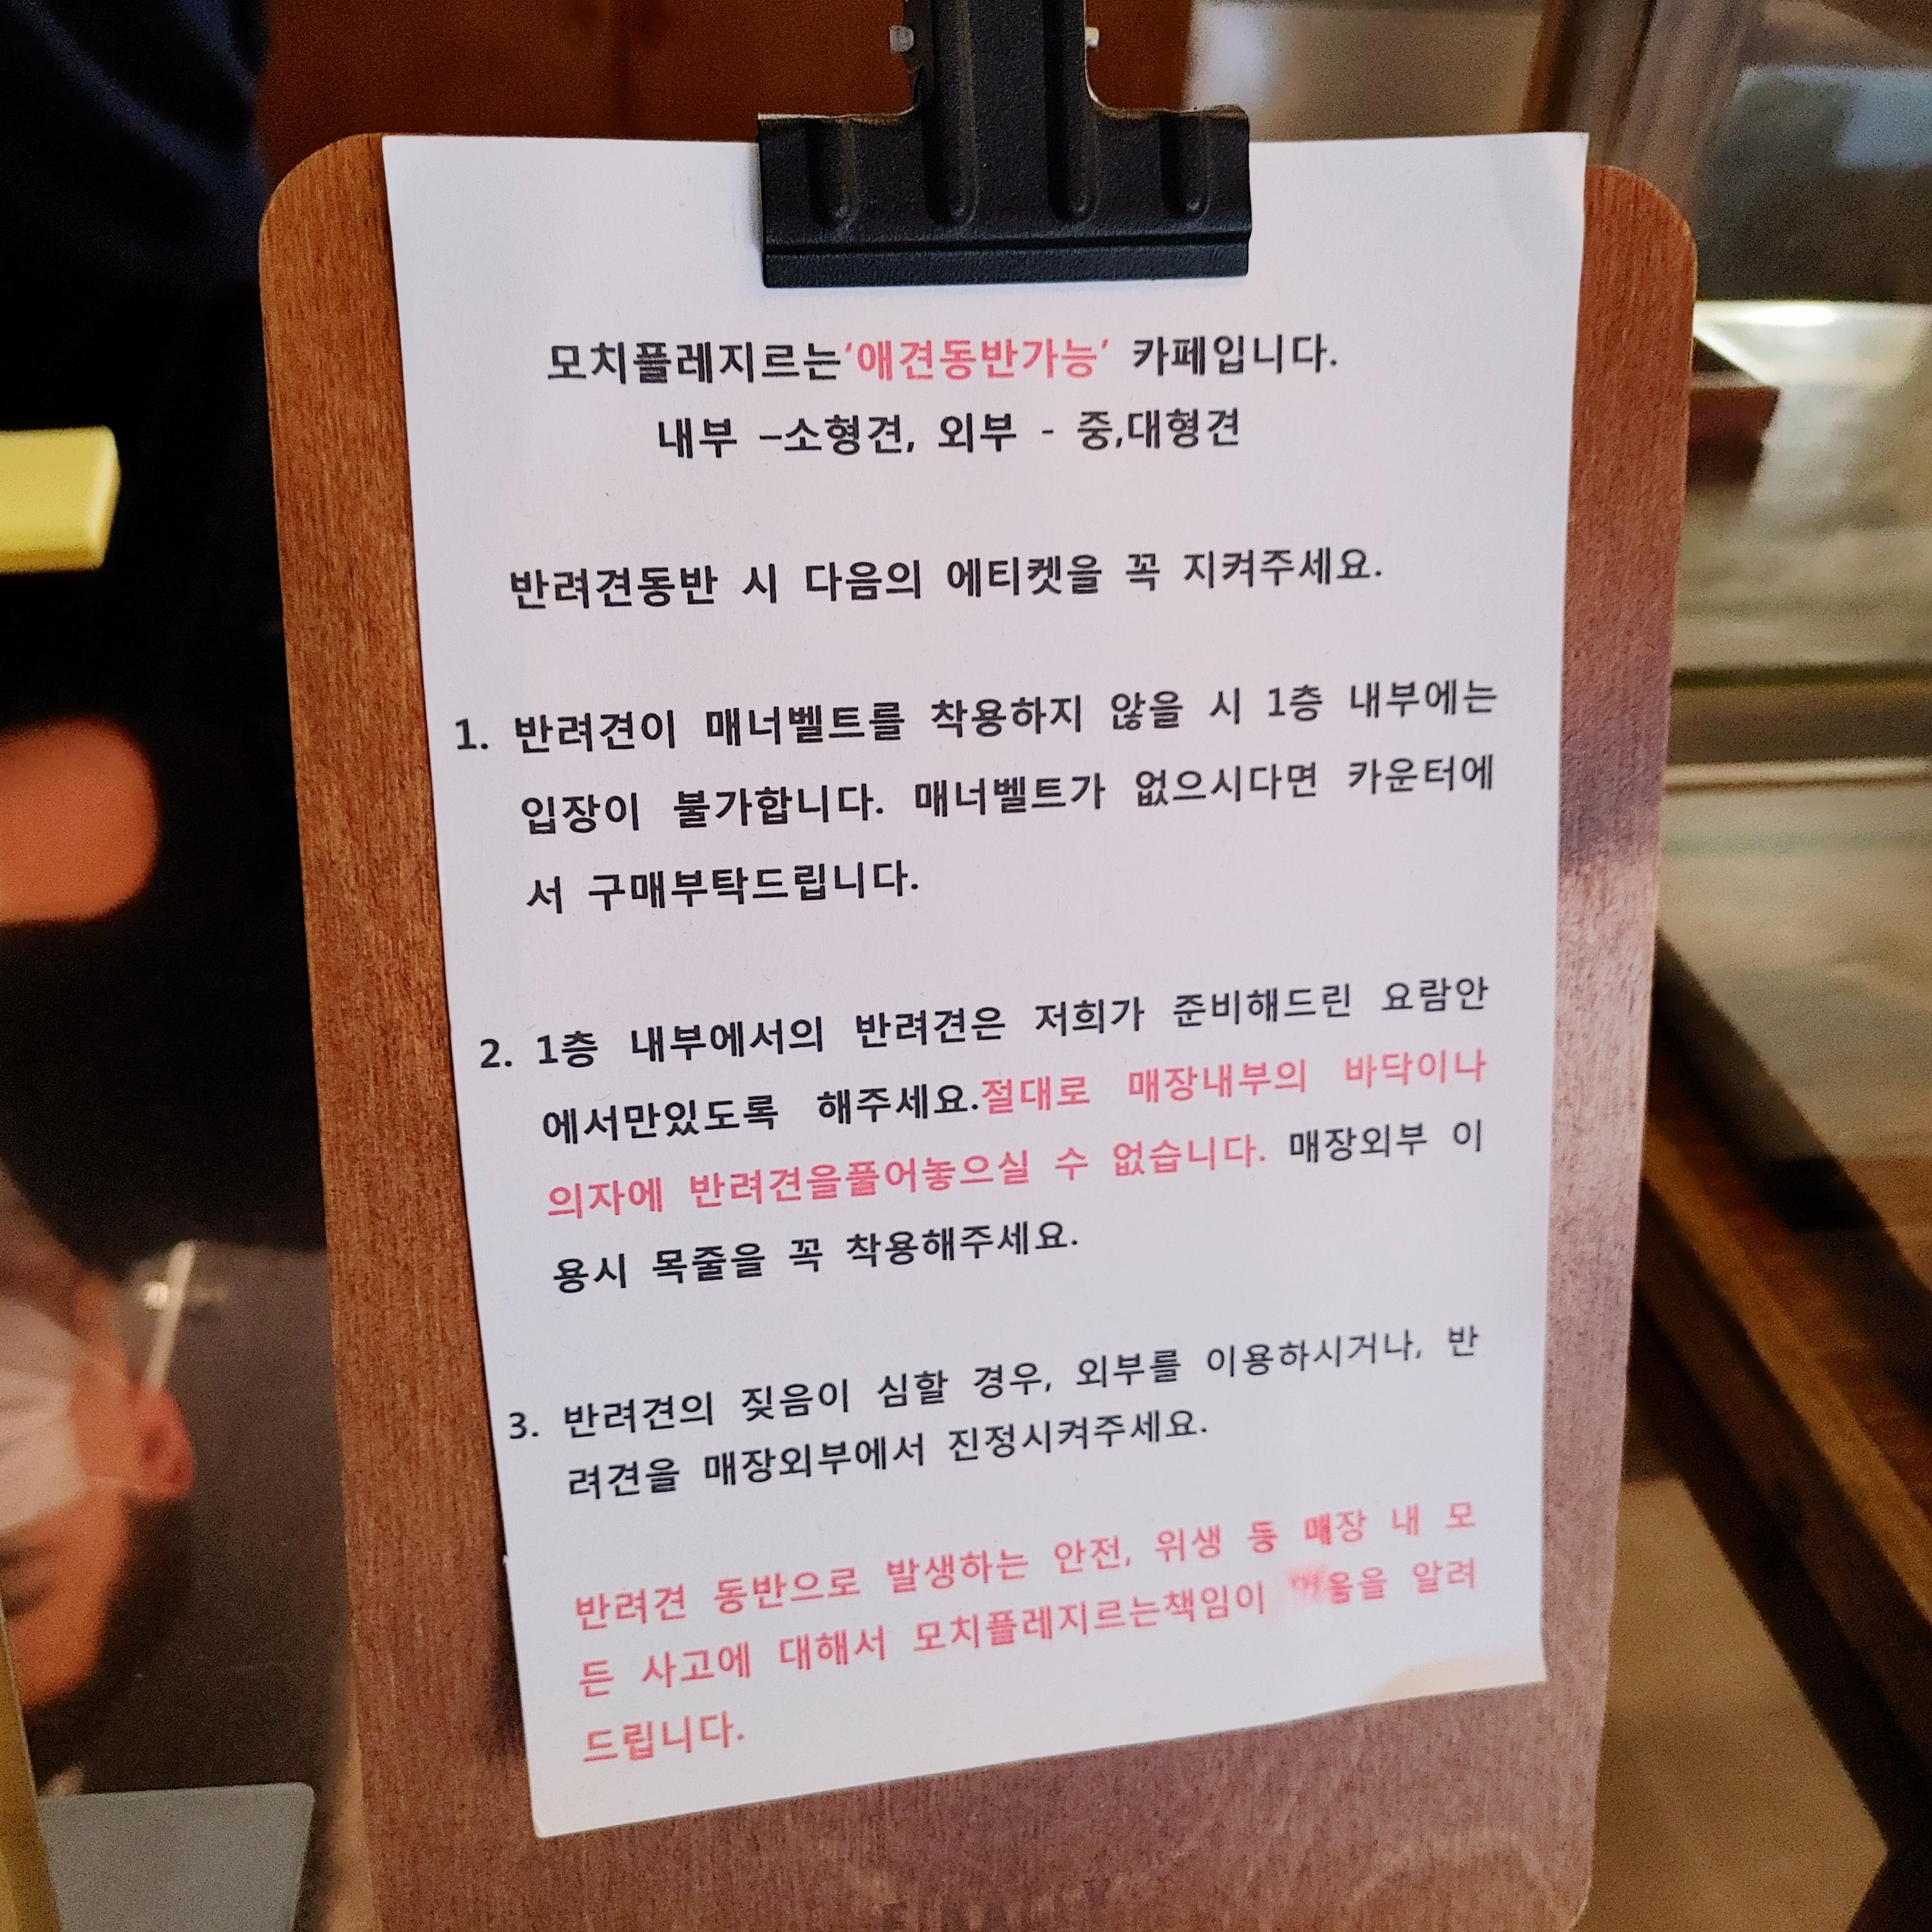 모치플레지르는‘애견동반가능’ 카페입니다.
내부 –소형견, 외부 - 중,대형견
반려견동반 시 다음의 에티켓을 꼭 지켜주세요.
1. 반려견이 매너벨트를 착용하지 않을 시 1층 내부에는
입장이 불가합니다. 매너벨트가 없으시다면 카운터에
서 구매부탁드립니다.
2. 1층 내부에서의 반려견은 저희가 준비해드린 요람안
에서만있도록 해주세요.절대로 매장내부의 바닥이나
의자에 반려견을풀어놓으실 수 없습니다. 매장외부 이
용시 목줄을 꼭 착용해주세요.
3. 반려견의 짖음이 심할 경우, 외부를 이용하시거나, 반
려견을 매장외부에서 진정시켜주세요.
반려견 동반으로 발생하는 안전, 위생 등 매장 내 모
든 사고에 대해서 모치플레지르는책임이 알려
드립니다.